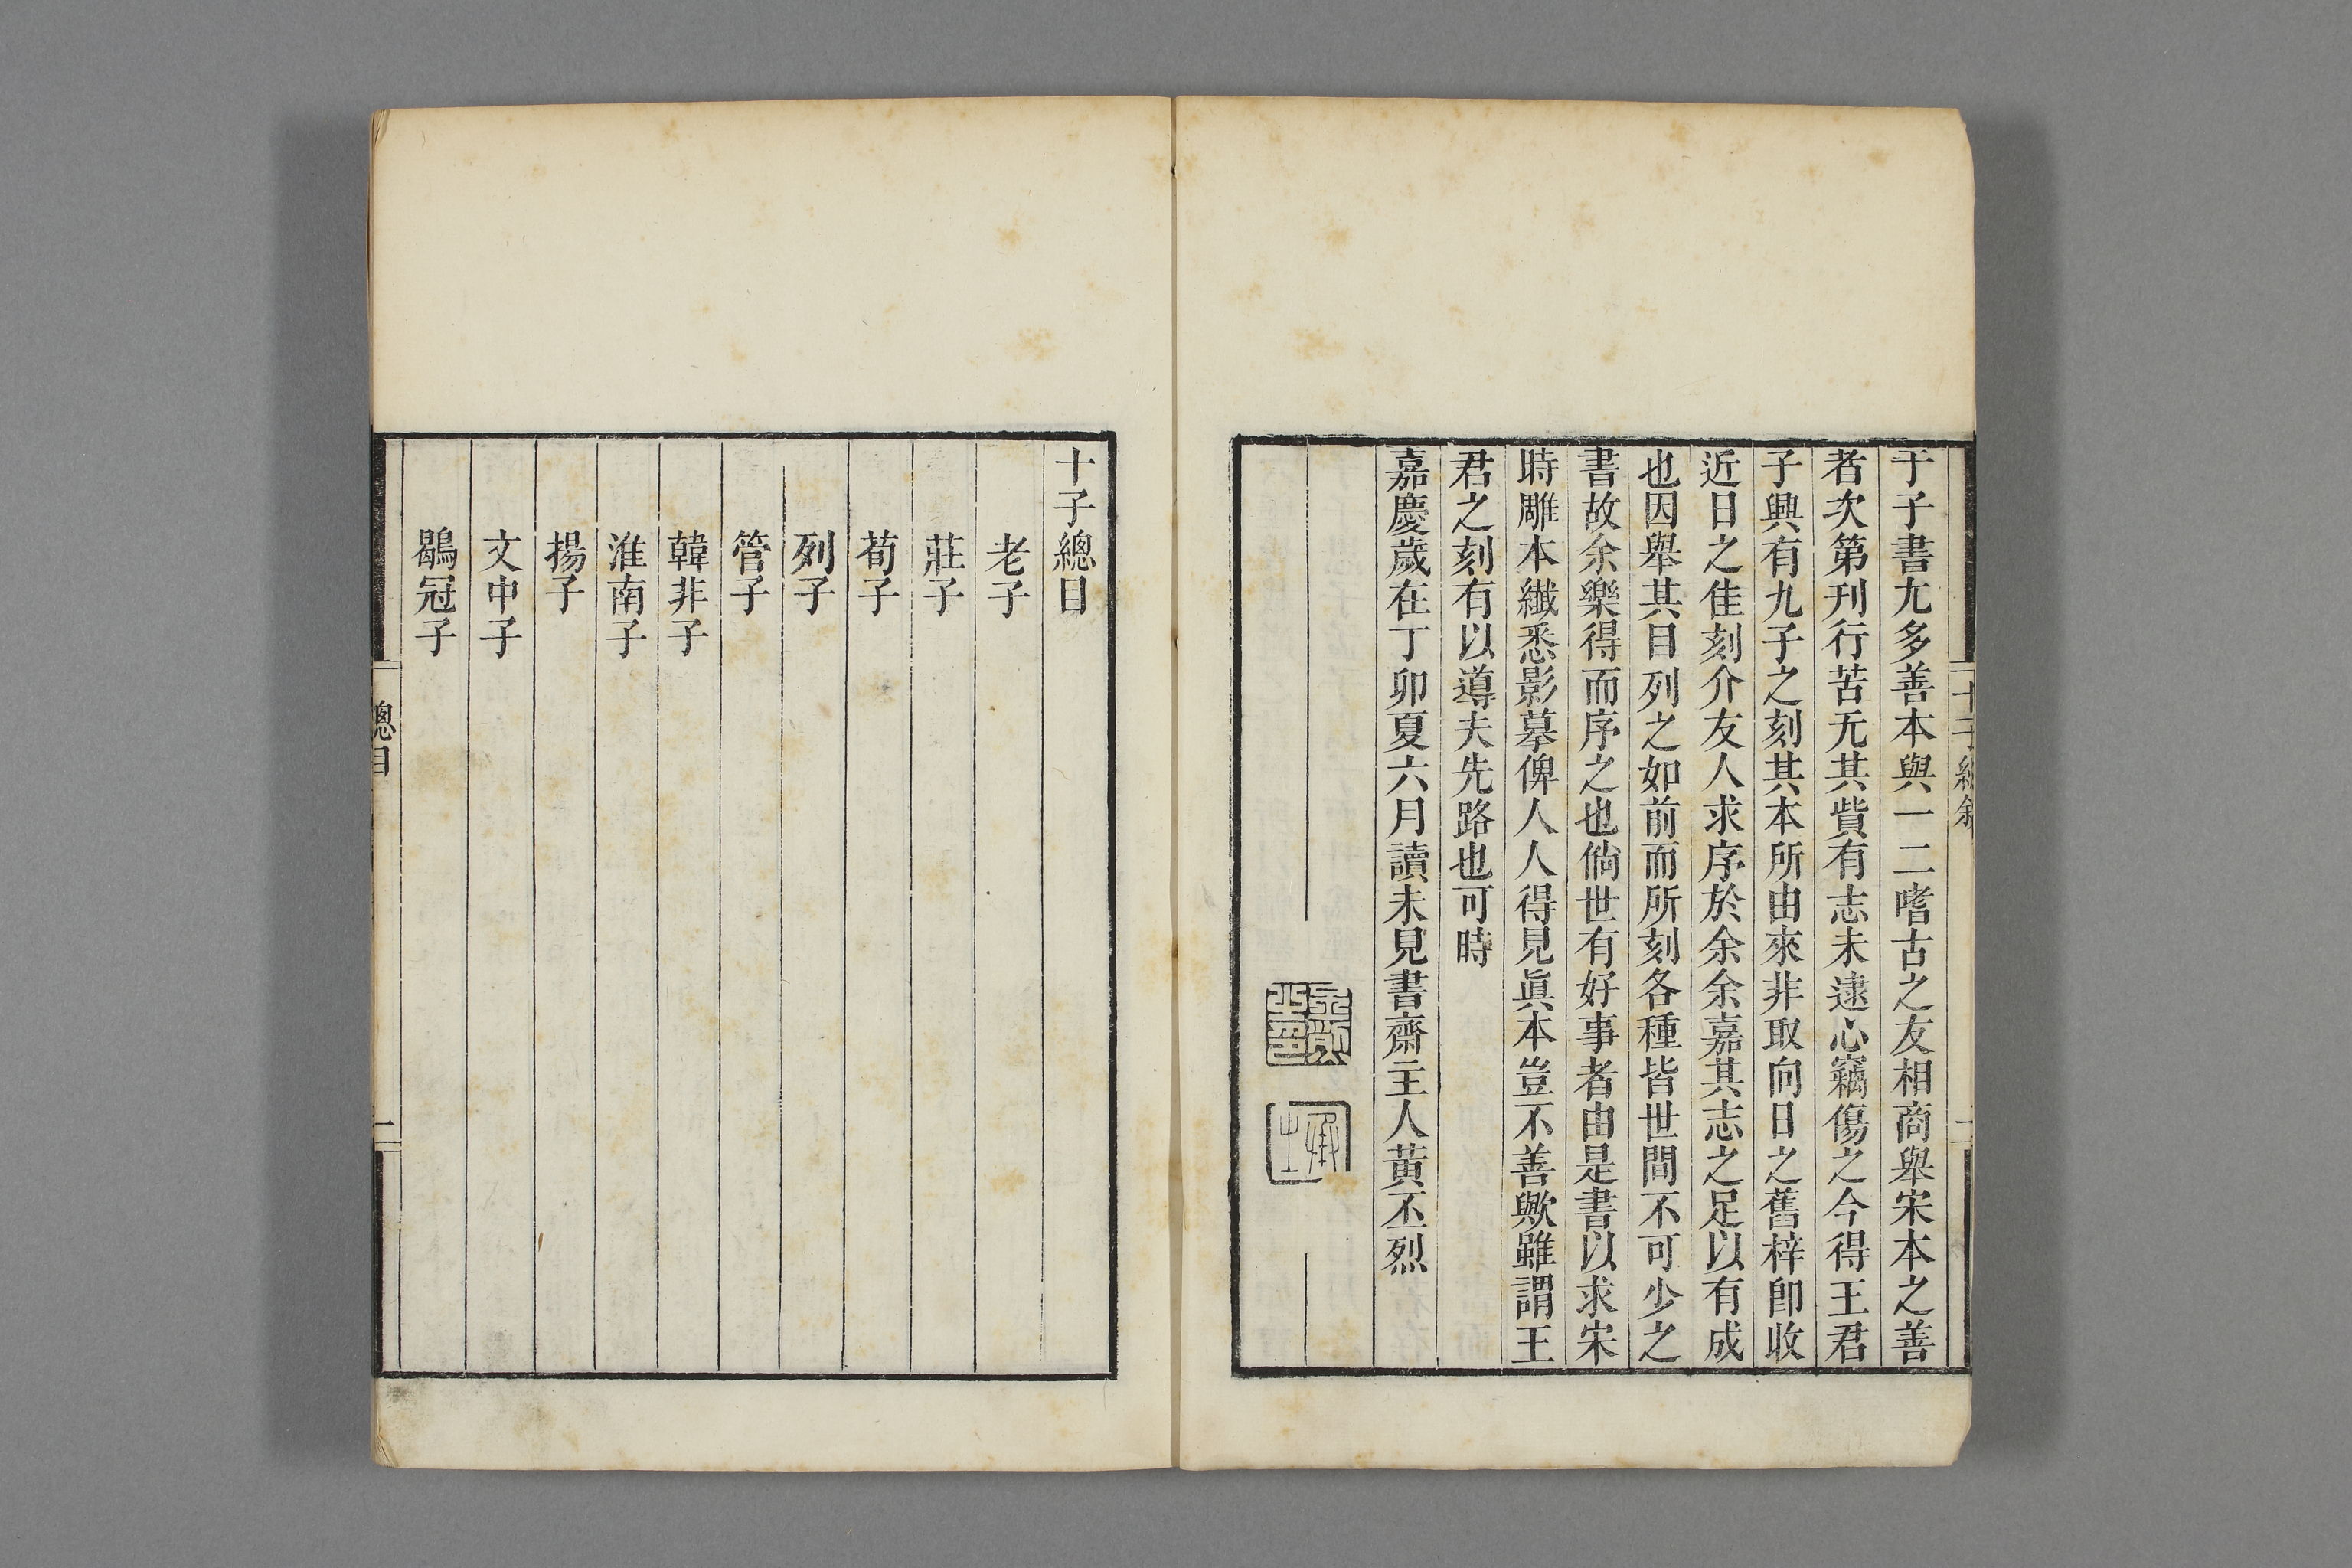 于子書尢多善本與一二嗜古之友相商舉宋本之善
者次第刊行苦无其貲有志未逮心竊傷之今得王君
子興有九子之刻其本所由來非取向日之舊梓卽收
近日之佳刻介友人求序於余余嘉其志之足以有成
也因舉其目列之如前而所刻各種皆世間不可少之
書故余樂得而序之也倘世有好事者由是書以求宋
時雕本纖悉影摹俾人人得見眞本豈不善歟雖謂王
君之刻有以導夫先路也可時
嘉慶歲在丁卯夏六月讀未見書齋主人黃丕烈
十子總目
老子
莊子
荀子
列子
管子
韓非子
淮南子
揚子
文中子
鶡冠子
總目